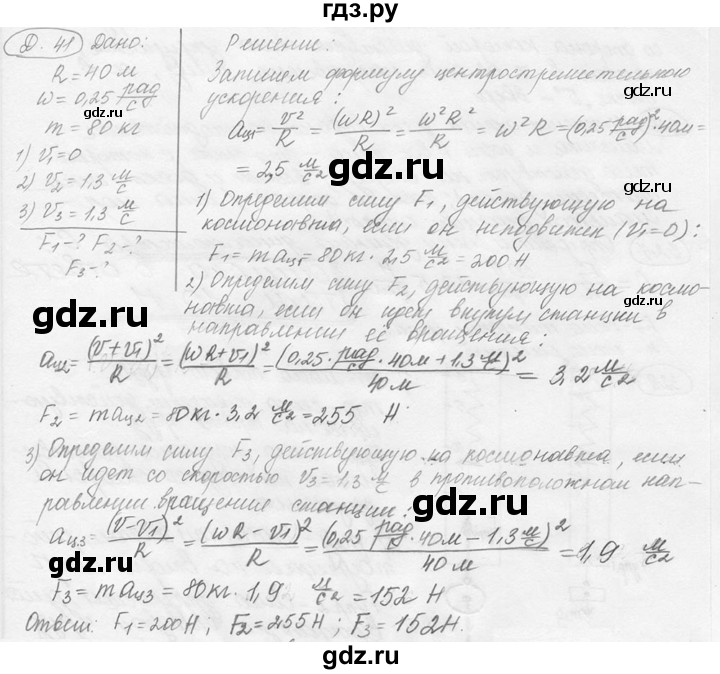 гдз.ру
Д. 41 Дано:
R = 40 м
ω = 0,25 рад/с
m = 80 кг
1) v₁ = 0
2) v₂ = 1,3 м/с
3) v₃ = 1,3 м/с
F₁ - ? F₂ - ?
F₃ - ?
Решение:
Запишем формулу центростремительного
ускорения:
aц₁ = v²/R = (ωR)²/R = ω²R²/R = ω²R = (0,25 рад/с)² · 40 м =
= 2,5 м/с²
1) Определим силу F₁, действующую на
космонавта, если он неподвижен (v₁ = 0):
F₁ = maц₁ = 80 кг · 2,5 м/с² = 200 Н
2) Определим силу F₂, действующую на космо-
навта, если он идет внутри станции в
направлении её вращения:
aц₂ = (v + v₁)²/R = (ωR + v₁)²/R = (0,25 · рад/с · 40 м + 1,3 м/с)²/40 м = 3,2 м/с²
F₂ = maц₂ = 80 кг · 3,2 м/с² = 255 Н
3) Определим силу F₃, действующую на космонавта, если
он идет со скоростью v₃ = 1,3 м/с в противоположном нап-
равлении вращение станции:
aц.₃ = (v - v₁)²/R = (ωR - v₁)²/R = (0,25 рад/с · 40 м - 1,3 м/с)²/40 м = 1,9 м/с²
F₃ = maц₃ = 80 кг · 1,9 м/с² = 152 Н
Ответ: F₁ = 200 Н; F₂ = 255 Н; F₃ = 152 Н.
gdz.ru
gdz.ru
gdz.ru
gdz.ru
gdz.ru
gdz.ru
gdz.ru
gdz.ru
gdz.ru
gdz.ru
gdz.ru
gdz.ru
gdz.ru